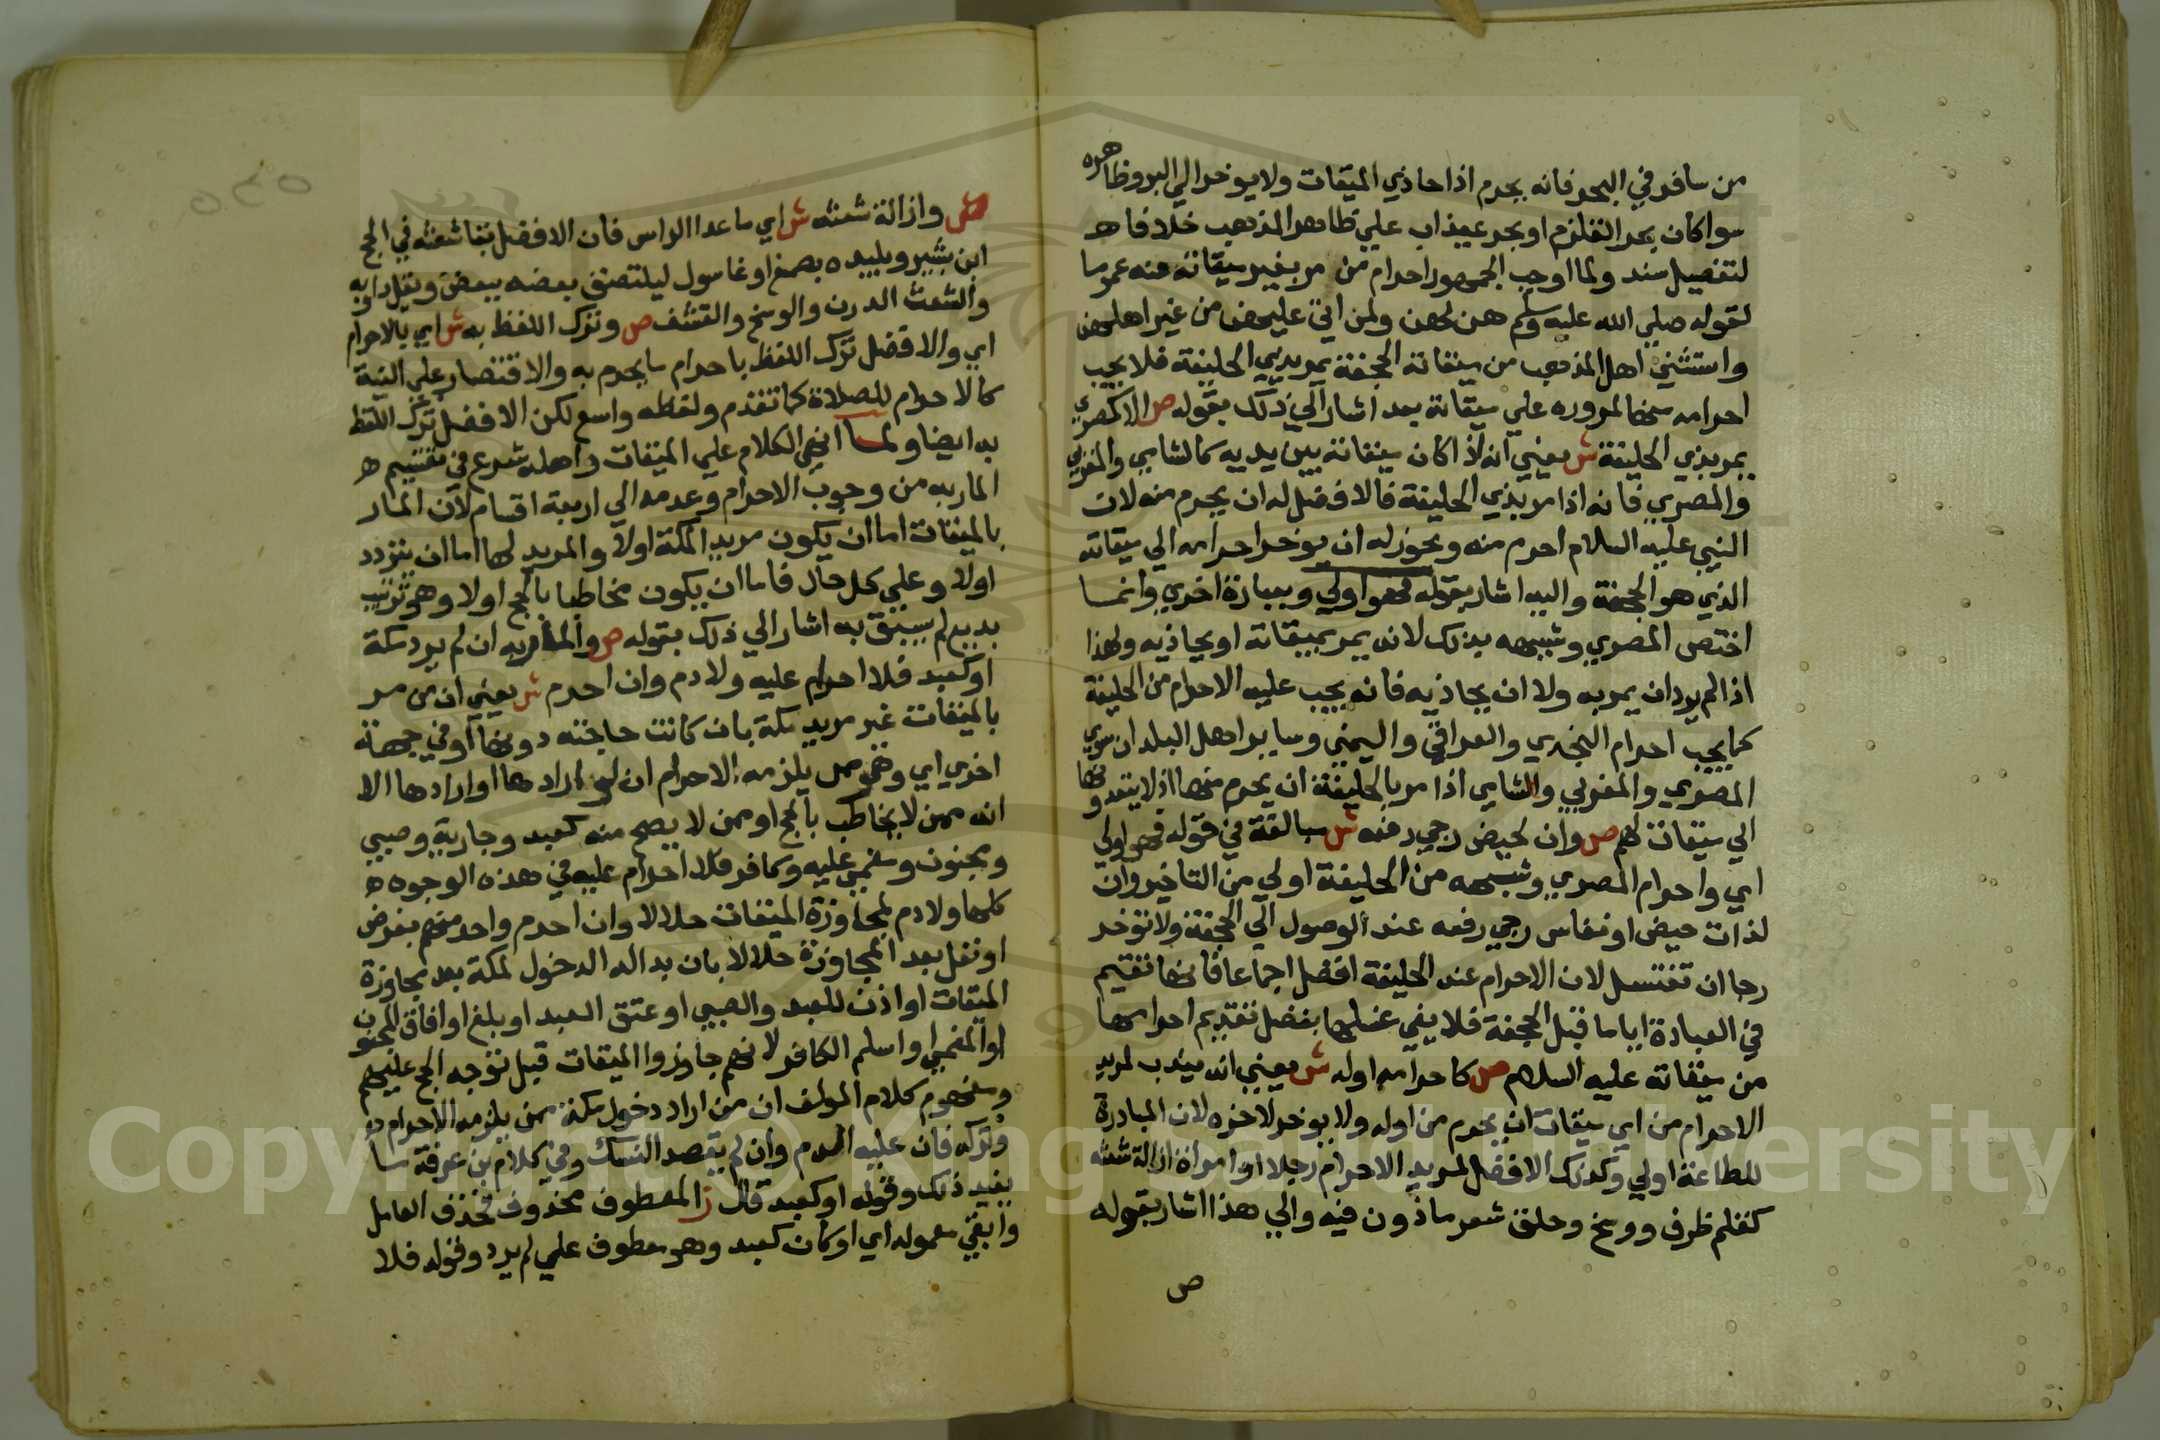 من سافر في البحر فانه يحرم اذا حاذي الميقات ولا يوخر الي البر وظاهره
سوا كان بحر القلزم او بحر عيذاب علي ظاهر المذهب خلافا ه
لتفصيل سند ولما اوجب الجمهور احرام من مر بغير ميقاته منه عموما
لقوله صلي الله عليه وسلم هن لهن ولمن اتي عليهن من غير اهلهن
واستثني اهل المذهب من ميقاته الجحفة يمر بذي الحليفة فلا يجب
احرامه منها لمروره علي ميقاته بعد اشار الي ذلك بقوله ص الا كمصري
يمر بذي الحليفة ش يعني انه اذا كان ميقاته بين يديه كالشامي والمغربي
والمصري فانه اذا مر بذي الحليفة فالافضل له ان يحرم منه لان
النبي عليه السلام احرم منه ويجوز له ان يوخر احرامه الي ميقاته
الذي هو الجحفة واليه اشار بقوله فهو اولي وبعبارة اخري وانما
اختص المصري وشبهه بذلك لانه يمر بميقاته او يحاذيه ولهذا
اذا لم يرد ان يمر به ولا ان يحاذيه فانه يجب عليه الاحرام من الحليفة
كما يجب احرام النجدي والعراقي واليمني وساير اهل البلدان سوي
المصري والمغربي والشامي اذا مر بالحليفة ان يحرم منها اذ لا يتعدونها
الي ميقات لهم ص وان لحيض رجي رفعه ش مبالغة في قوله فهو اولي
اي واحرام المصري وشبهه من الحليفة اولي من التاخير وان
لذات حيض او نفاس رجي رفعه عند الوصول الي الجحفة ولا توخر
رجا ان تغتسل لان الاحرام عند الحليفة افضل اجماعا فانها تقيم
في العبادة اياما قبل الجحفة فلا يفي غسلها بفضل تقديم احرامها
من ميقاته عليه السلام ص كاحرامه اوله ش يعني انه يندب لمريد
الاحرام من اي ميقات ان يحرم من اوله ولا يوخر لاخره لان المبادرة
للطاعة اولي وكذلك الافضل لمريد الاحرام رجلا او امراة ازالة شعثه
كقلم ظرف ووسخ وحلق شعر ماذون فيه والي هذا اشار بقوله
ص
ص وازالة شعثه ش اي ما عدا الراس فان الافضل بقا شعثه في الحج
ابن بشير ويلبده بصمغ او غاسول ليلتصق بعضه ببعض وتقل دوابه
والشعث الدرن والوسخ والقشف ص وترك اللفظ به ش اي بالاحرام
اي والافضل ترك اللفظ باحرام ما يحرم به والاقتصار علي النية
كالاحرام للصلاة كما تقدم ولفظه واسع لكن الافضل ترك اللفظ
به ايضا ولما انهي الكلام علي الميقات واهله شرع في تقسيم ه
المار به من وجوب الاحرام وعدمه الي اربعة اقسام لان المار
بالميقات اما ان يكون مريد المكة اولا والمريد لها اما ان يتردد
اولا وعلي كل حال فاما ان يكون مخاطبا بالحج اولا وهو ترتيب
بديع لم يسبق به اشار الي ذلك بقوله ص والمار به ان لم يرد مكة
او كعبد فلا احرام عليه ولا دم وان احرم ش يعني ان من مر
بالميقات غير مريد مكة بان كانت حاجته دونها او في جهة
اخري اي وهو ممن يلزمه الاحرام ان لو ارادها او ارادها الا
انه ممن لا يخاطب بالحج او ممن لا يصح منه كعبد وجارية وصبي
ومجنون ومغمي عليه وكافر فلا احرام عليه في هذه الوجوه ه
كلها ولا دم لمجاوزة الميقات حلالا وان احرم واحد منهم بفرض
او نفل بعد المجاوزة حلالا بان بدا له الدخول لمكة بعد مجاوزة
الميقات او اذن للعبد والصبي او عتق العبد او بلغ او افاق المجنون
او المغمي او اسلم الكافر لانهم جاوزوا الميقات قبل توجه الحج عليهم
ومفهوم كلام المولف ان من اراد دخول مكة ممن يلزمه الاحرام
وتركه فان عليه الدم وان لم يقصد النسك وفي كلام بن عرفة ما
يفيد ذلك وقوله او كعبد قال ز المعطوف محذوف فحذف العامل
وابقي معموله اي او كان كعبد وهو معطوف علي لم يرد وقوله فلا
Copyright © King Saud University